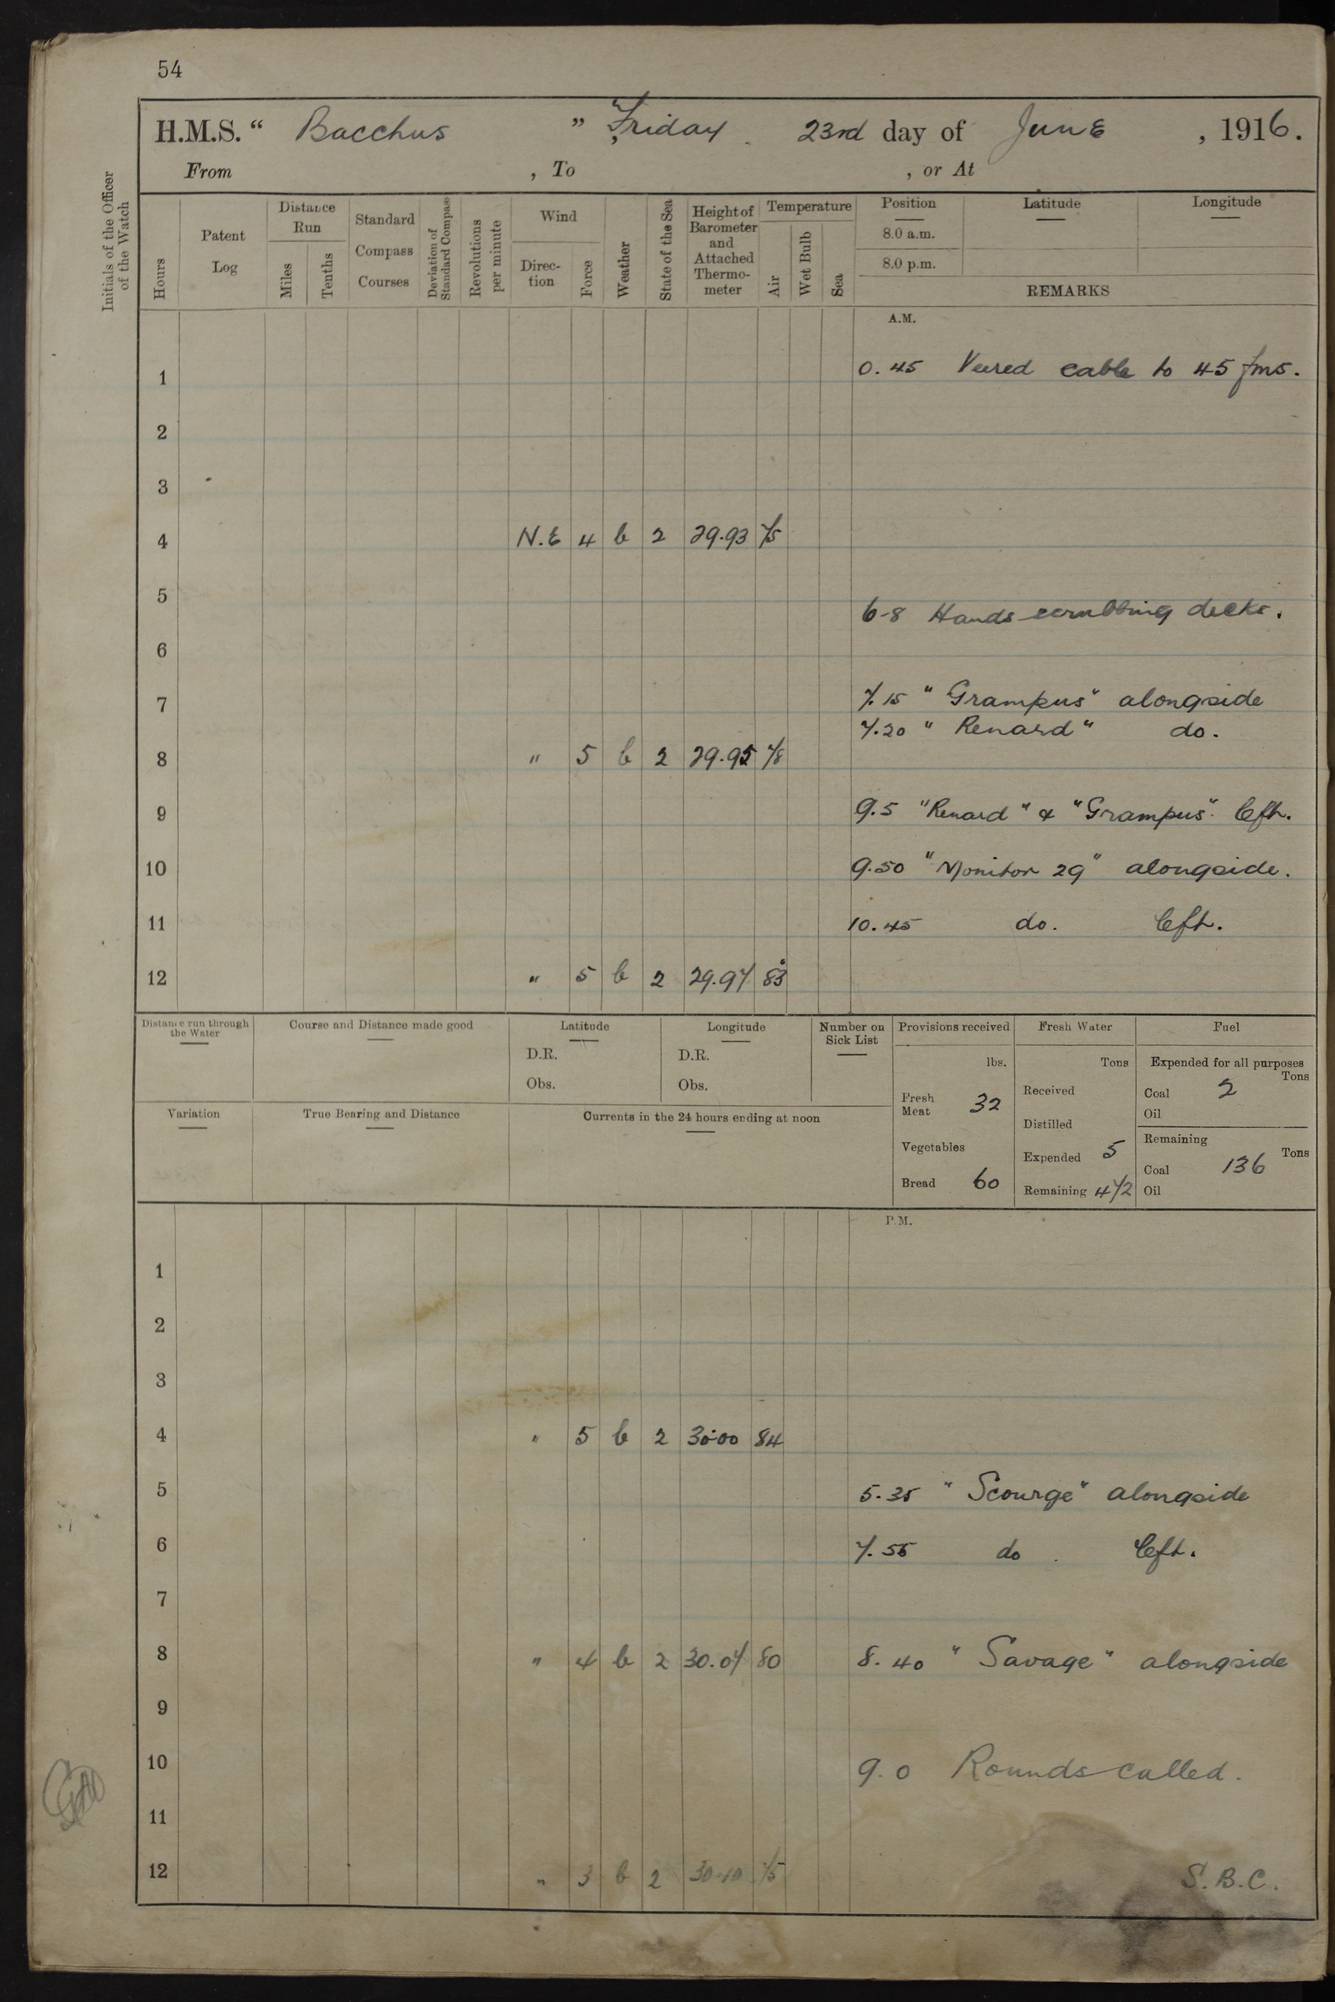 54
H.M.S. “ Bacchus ” , Friday 23rd day of June , 1916.
From , To , or At
Initials of the Officer of the Watch
Hours
Patent Log
Distance Run
Miles
Tenths
Standard Compass Courses
Deviation of Standard Compass
Revolutions per minute
Wind
Direction
Force
Weather
State of the Sea
Height of Barometer and Attached Thermometer
Temperature
Air
Wet Bulb
Sea
Position Latitude Longitude
8.0 a.m.
8.0 p.m.
REMARKS
A.M.
1 0.45 Veered cable to 45 fms.
2
3
4 N.E 4 b 2 29.93 75
5
6-8 Hands scrubbing decks.
6
7 7.15 "Grampus" alongside
7.20 "Renard" do.
8 " 5 b 2 29.95 78
9 9.5 "Renard" & "Grampus" left.
10 9.50 "Monitor 29" alongside.
11 10.45 do. left.
12 " 5 b 2 29.97 83
Distance run through the Water
Course and Distance made good
Latitude
D.R.
Obs.
Longitude
D.R.
Obs.
Number on Sick List
Provisions received
lbs.
Fresh Meat 32
Vegetables
Bread 60
Fresh Water
Tons
Received
Distilled
Expended 5
Remaining 472
Fuel
Expended for all purposes
Tons
Coal 2
Oil
Remaining
Tons
Coal 136
Oil
Variation
True Bearing and Distance
Currents in the 24 hours ending at noon
P.M.
1
2
3
4 " 5 b 2 30.00 84
5 5.35 "Scourge" alongside
6 7.55 do. left.
7
8 " 4 b 2 30.07 80 8.40 "Savage" alongside
9
10 9.0 Rounds called.
11
12 " 3 b 2 30.10 75
S.B.C.